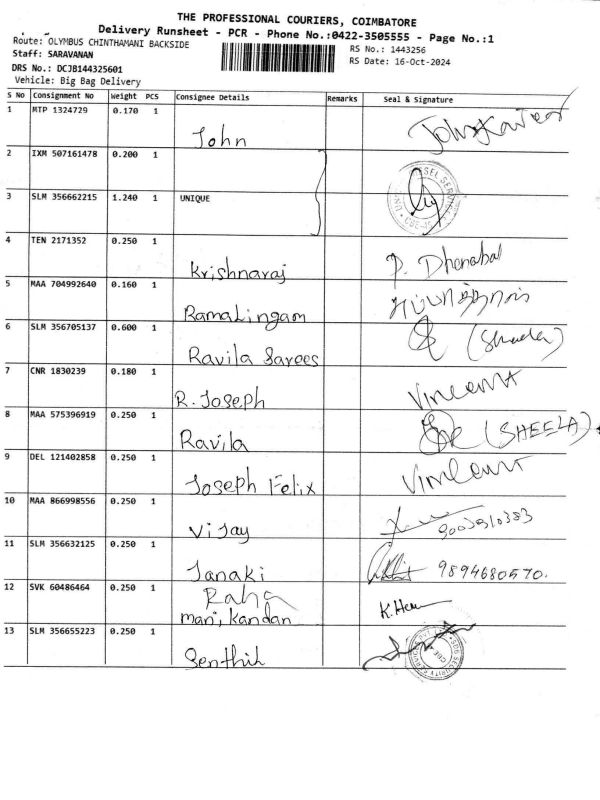 THE PROFESSIONAL COURIERS, COIMBATORE
Delivery Runsheet - PCR - Phone No.:0422-3505555 - Page No.:1
Route: OLYMBUS CHINTHAMANI BACKSIDE
RS No.: 1443256
Staff: SARAVANAN
RS Date: 16-Oct-2024
DRS No.: DCJB144325601
Vehicle: Big Bag Delivery
S No Consignment No Weight PCS Consignee Details Remarks Seal & Signature
1 MTP 1324729 0.170 1
John
2 IXM 507161478 0.200 1
3 SLM 356662215 1.240 1 UNIQUE
4 TEN 2171352 0.250 1
Krishnaraj P. Dhanabal
5 MAA 704992640 0.160 1
Ramalingam
6 SLM 356705137 0.600 1
Ravila Sarees (Sheela)
7 CNR 1830239 0.180 1
R. Joseph Vincent
8 MAA 575396919 0.250 1
Ravila (SHEELA)
9 DEL 121402858 0.250 1
Joseph Felix Vincent
10 MAA 866998556 0.250 1
Vijay
11 SLM 356632125 0.250 1
Janaki 9894680570.
12 SVK 60486464 0.250 1
K.Hem
mani, kandan
13 SLM 356655223 0.250 1
Senthil